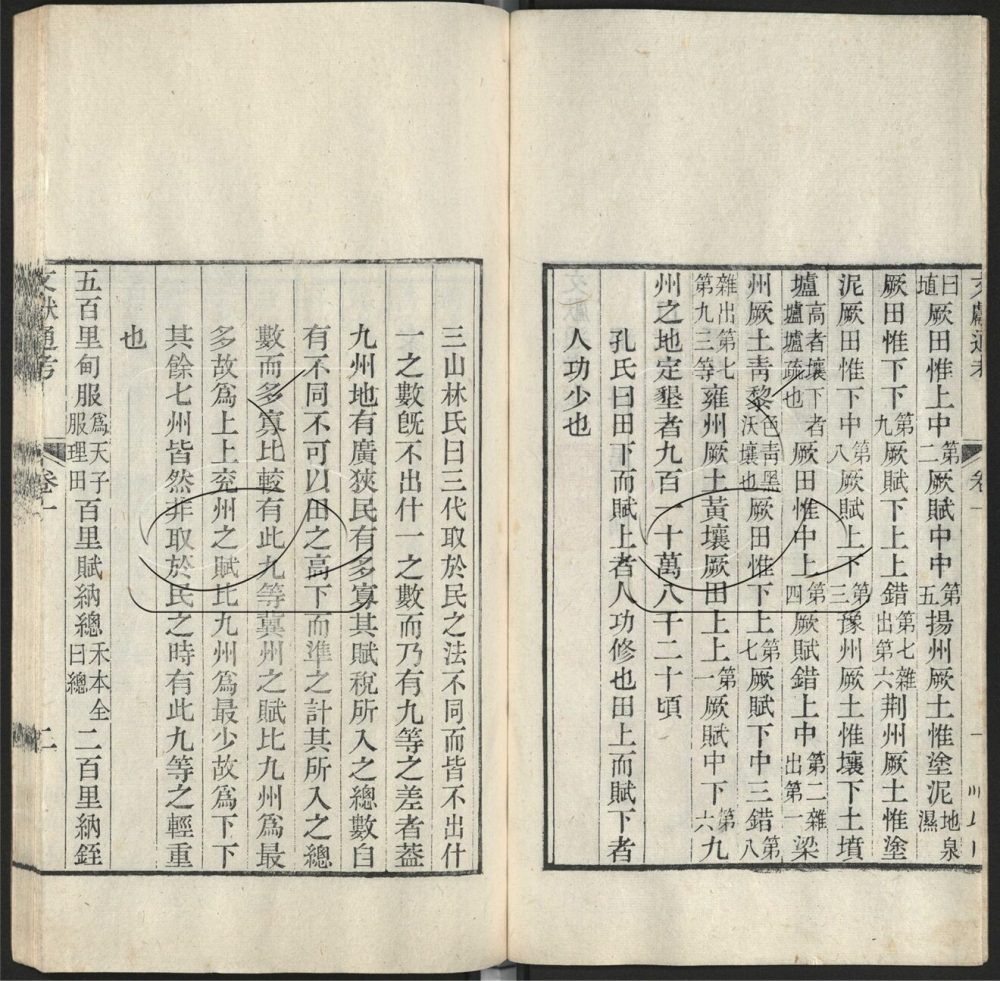 曰埴厥田惟上中第二厥賦中中第五揚州厥土惟塗泥地泉濕
厥田惟下下第九厥賦下上上錯第七雜出第六荆州厥土惟塗
泥厥田惟下中第八厥賦上下第三豫州厥土惟壤下土墳
壚高者壤下者壚壚疏也厥田惟中上第四厥賦錯上中第二雜出第一梁
州厥土靑黎色靑黑沃壤也厥田惟下上第七厥賦下中三錯第八
雜出第七第九三等雍州厥土黃壤厥田上上第一厥賦中下第六九
州之地定墾者九百一十萬八千二十頃
孔氏曰田下而賦上者人功修也田上而賦下者
人功少也
三山林氏曰三代取於民之法不同而皆不出什
一之數旣不出什一之數而乃有九等之差者葢
九州地有廣狹民有多寡其賦稅所入之總數自
有不同不可以田之高下而準之計其所入之總
數而多寡比較有此九等冀州之賦比九州爲最
多故爲上上兖州之賦比九州爲最少故爲下下
其餘七州皆然非取於民之時有此九等之輕重
也
五百里甸服爲天子服理田百里賦納總禾本全曰總二百里納銍
文獻通考 卷一 二